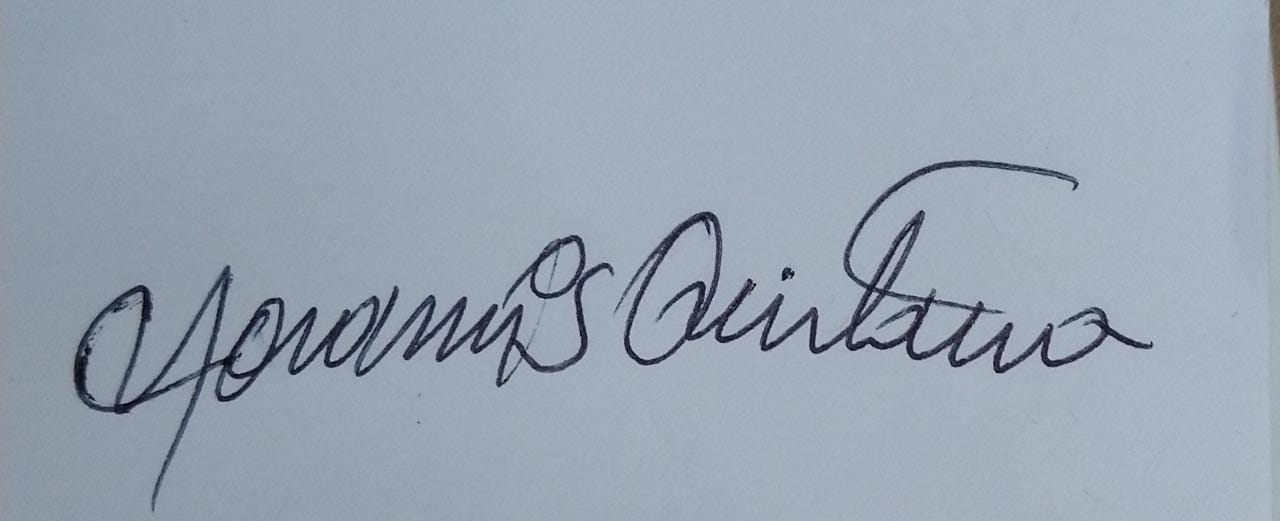 Yovannis Quintana